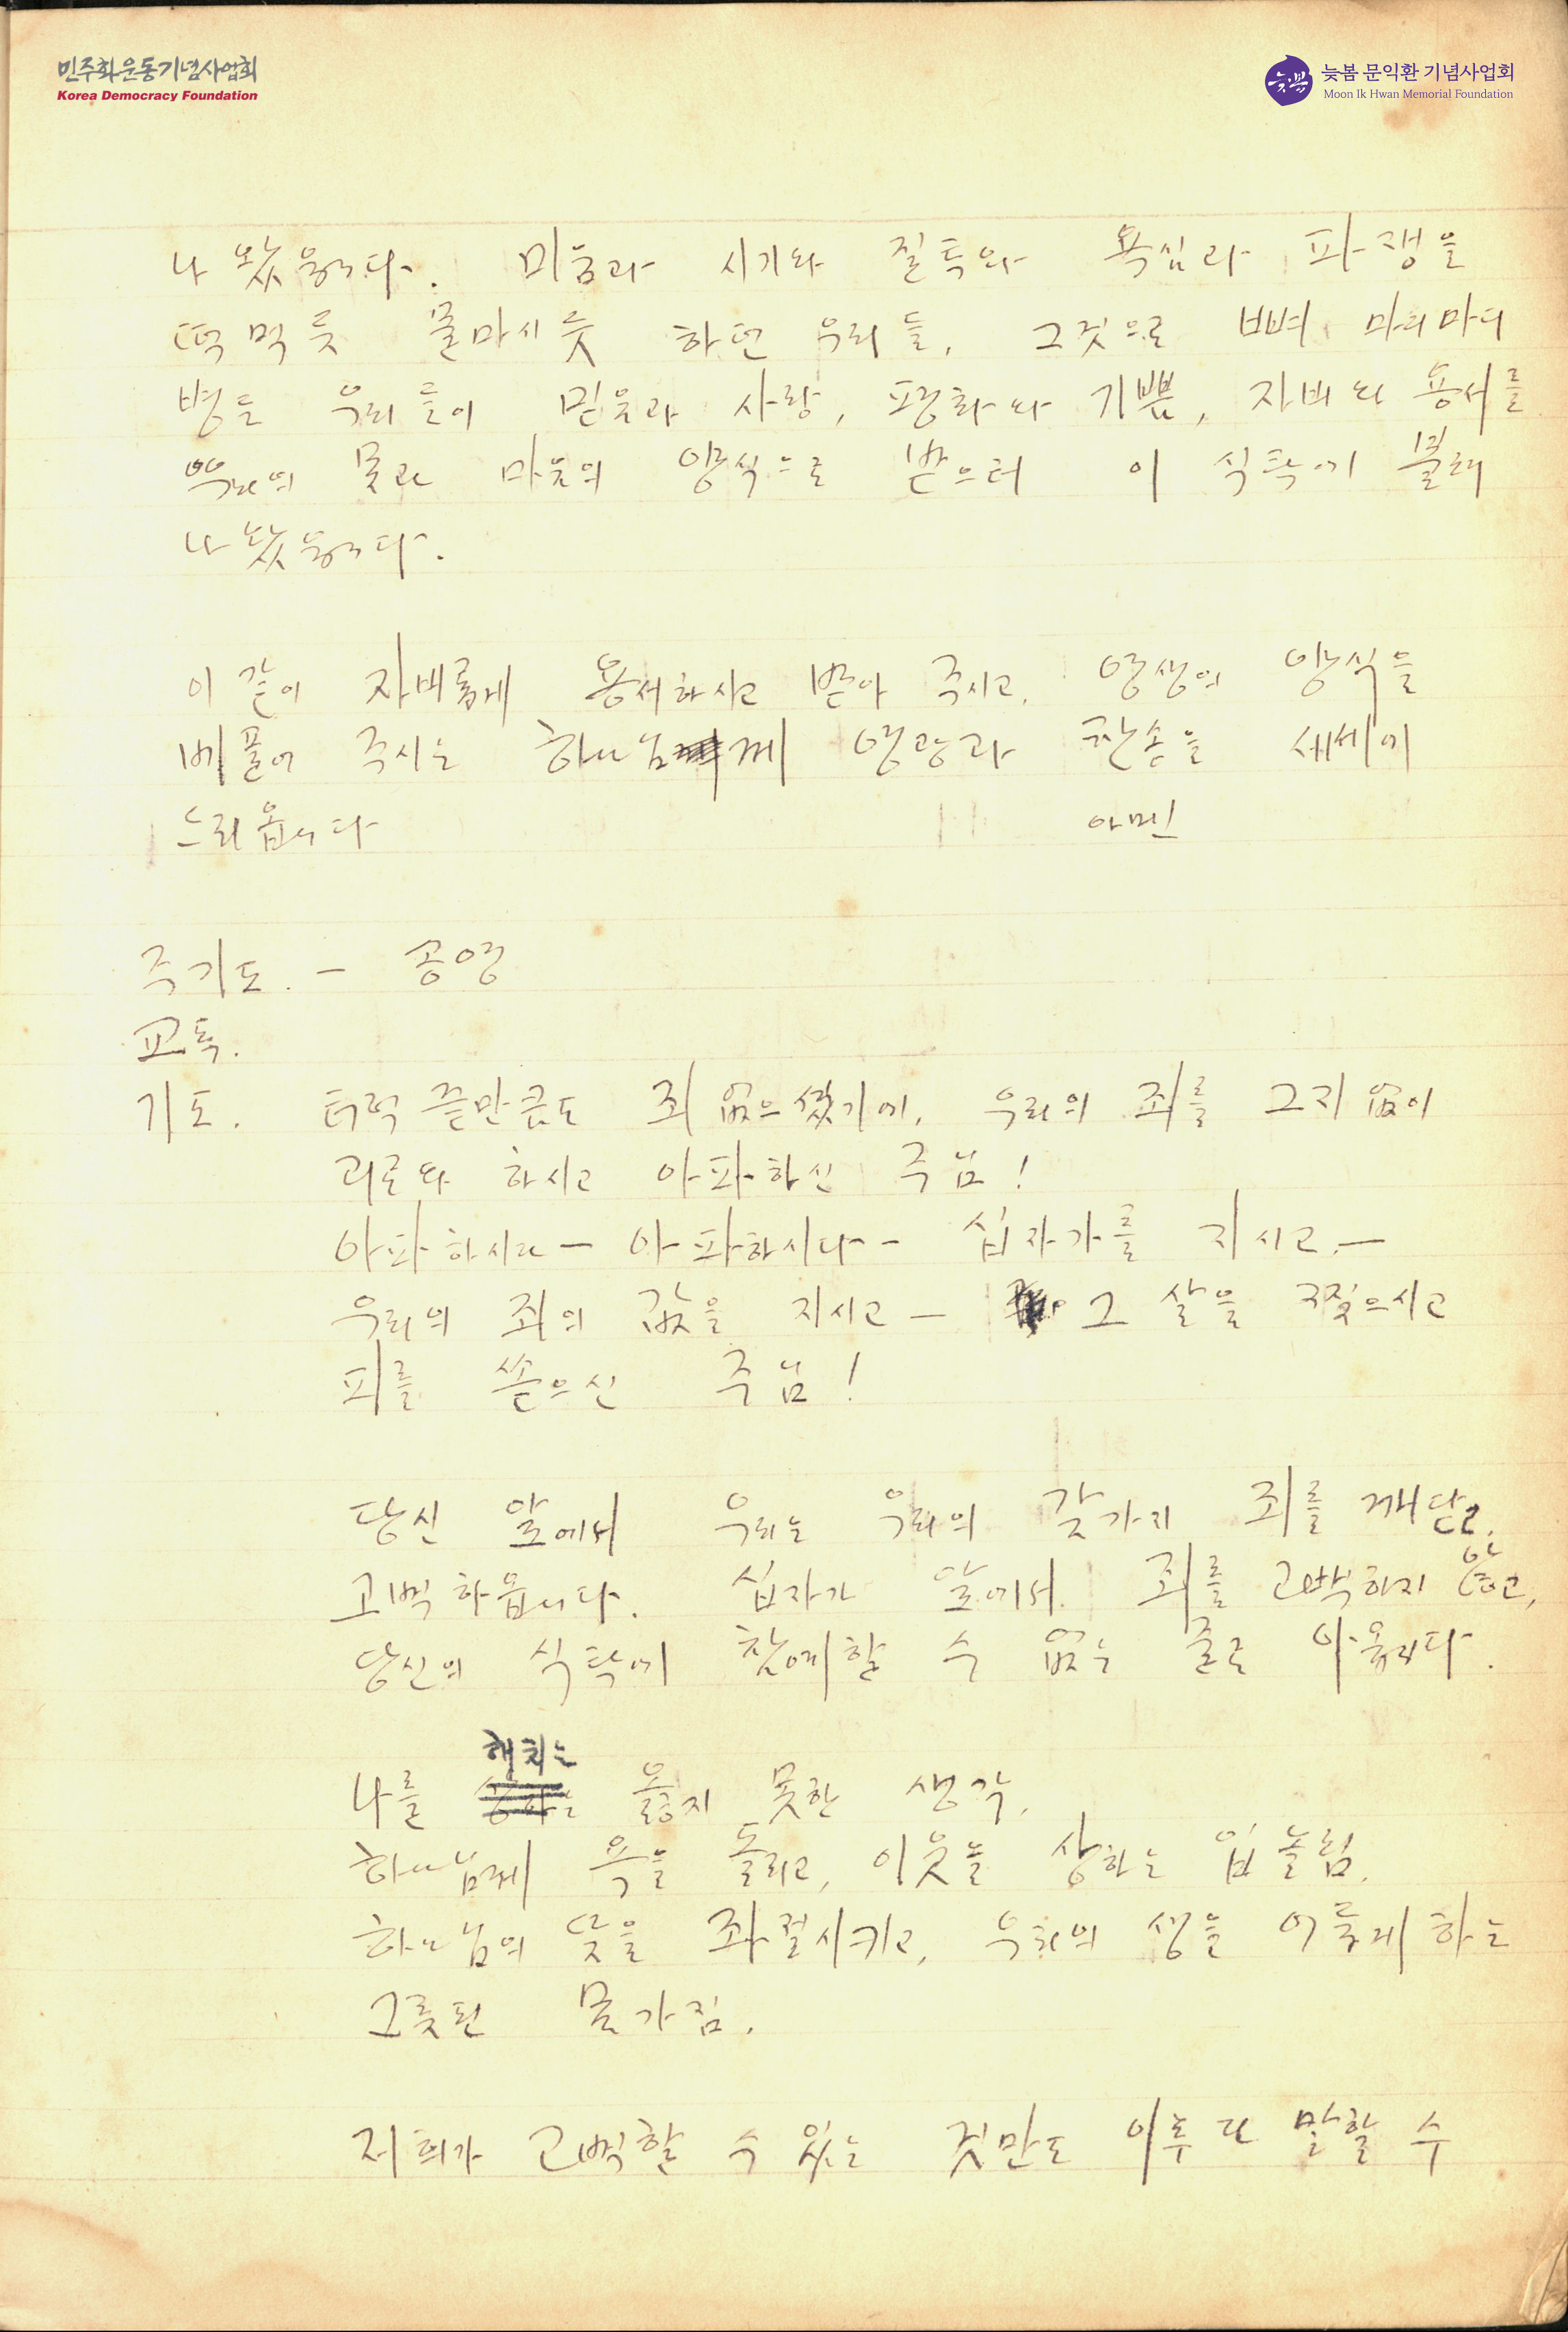 민주화운동기념사업회
Korea Democracy Foundation
늦봄 문익환 기념사업회
Moon Ik Hwan Memorial Foundation
나 왔읍니다. 미움과 시기와 질투와 욕심과 파쟁을
떡 먹듯 물마시듯 하던 우리들, 그것으로 뼈 마디마디
병든 우리들이 믿음과 사랑, 평화와 기쁨, 자비와 용서를
우리의 몸과 마음의 양식으로 받으러 이 식탁에 불려
나왔읍니다.
이같이 자비롭게 용서하시고 받아 주시고, 영생의 양식을
베풀어 주시는 하느님께 영광과 찬송을 세세에
드리옵니다 아멘
주기도. - 송영
교독.
기도. 터럭 끝만큼도 죄 없으셨기에, 우리의 죄를 그지없이
괴로와 하시고 아파하신 주님!
아파하시고 - 아파하시다 - 십자가를 지시고, -
우리의 죄의 값을 지시고 - 그 살을 찢으시고
피를 쏟으신 주님!
당신 앞에서 우리는 우리의 갖가지 죄를 깨닫고,
고백하옵니다. 십자가 앞에서 죄를 고백하지 않고,
당신의 식탁에 참예할 수 없는 줄로 아옵니다.
해치는
나를 옳지 못한 생각,
하느님께 욕을 돌리고, 이웃을 상하는 입놀림,
하느님의 뜻을 좌절시키고, 우리의 생을 어둡게 하는
그릇된 몸가짐.
저희가 고백할 수 있는 것만도 이루 다 말할 수